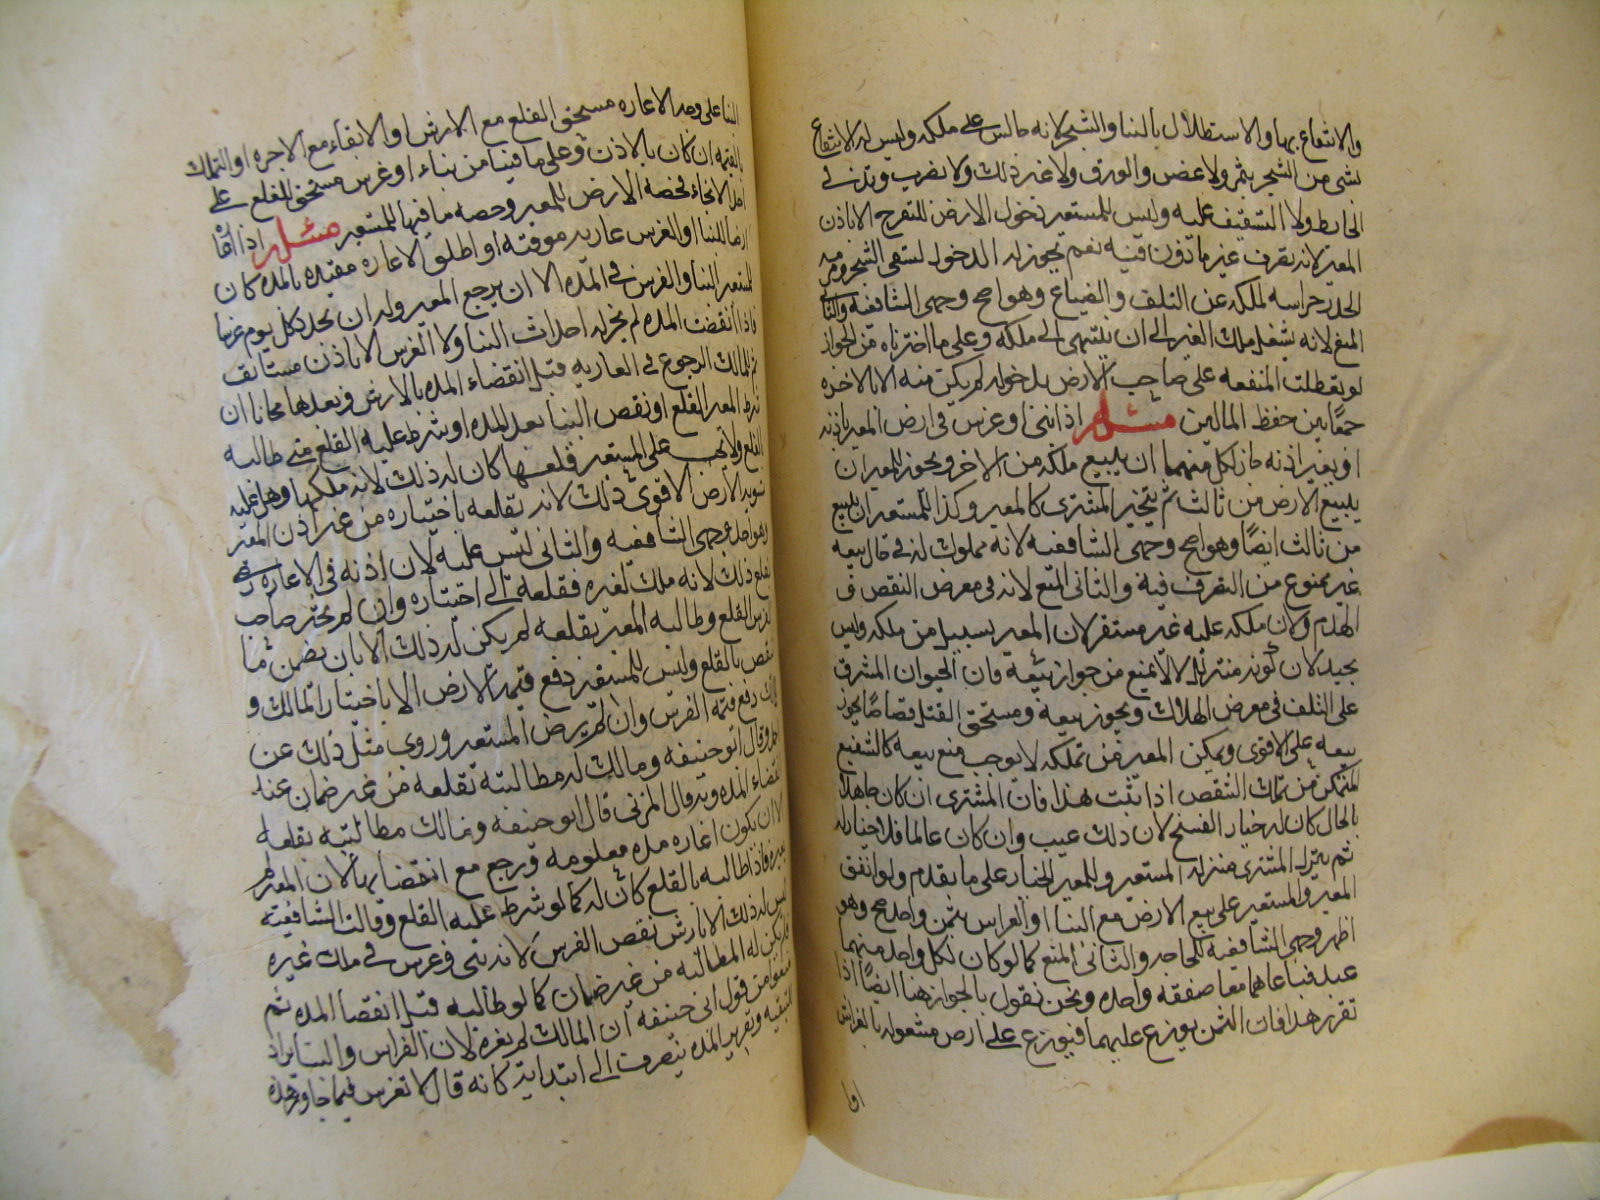 والانتفاع بها والاستظلال بالبنا والشجر لانه جالس على ملكه وليس له الانتفاع
بشي من الشجر بثمر ولا غصن والورق ولا غير ذلك ولا بضرب وتد في
الحايط ولا التسقيف عليه وليس للمستعير دخول الارض للتفرج الا باذن
المعير لانه تصرف غير ماذون فيه نعم يجوز له الدخول لسقي الشجر ومرمه
الجدر حراسه لملكه عن التلف والضياع وهو اصح وجهى الشافعيه والثانى
المنع لانه يشغل ملك الغير الى ان ينتهى الى ملكه وعلى ما اخترناه من الجواز
لو تعطلت المنفعه على صاحب الارض بدخوله لم يكن منه الا بالاجره
جمعا بين حفظ المالين مسئله اذا بنى او غرس فى ارض المعير باذنه
او بغير اذنه جاز لكل منهما ان يبيع ملكه من الاخر ويجوز للمعير ان
يبيع الارض من ثالث ثم يتخير المشترى كالمعير وكذا للمستعير ان يبيع
من ثالث ايضا وهو اصح وجهى الشافعيه لانه مملوك له فى حال بيعه
غير ممنوع من التصرف فيه والثانى المنع لانه فى معرض النقص و
الهدم ولان ملكه عليه غير مستقر لان المعير بسبيل من ملكه وليس
بجيد لان كونه متزلزلا لا يمنع من جواز بيعه فان الحيوان المشرف
على التلف فى معرض الهلاك ويجوز بيعه ومستحق القتل قصاصا يجوز
بيعه على الاقوى وتمكن المعير من تملكه لا يوجب منع بيعه كالشفيع
المتمكن من تملك الشقص اذا ثبت هذا فان المشترى ان كان جاهلا
بالحال كان له خيار الفسخ لان ذلك عيب وان كان عالما فلا خيار له
ثم ينزل المشترى منزله المستعير وللمعير الخيار على ما تقدم ولو اتفق
المعير والمستعير على بيع الارض مع البنا او الغراس بثمن واحد صح وهو
اظهر وجهى الشافعيه للحاجه والثانى المنع كما لو كان لكل واحد منهما
عبد فباعاهما معا صفقه واحده ونحن نقول بالجواز هنا ايضا اذا
تقرر هذا فان الثمن يوزع عليهما فيوزع على ارض مشغوله بالغراس
او
البنا على وجه الاعاره مستحق القلع مع الارش او الابقاء مع الاجره او التملك
بالقيمه ان كان بالاذن وعلى ما فيها من بناء او غرس مستحق القلع على
احد الانحاء فحصه الارض للمعير وحصه ما فيها للمستعير مسئله اذا اعاره
ارضا للبنا او الغرس عاريه موقته او اطلق الاعاره مقيده بالمده كان
للمستعير البنا والغرس فى المده الا ان يرجع المعير وله ان يجدد كل يوم غرسا
فاذا انقضت المده لم يجز له احداث البنا ولا الغرس الا باذن مستانف
ثم للمالك الرجوع فى العاريه قبل انقضاء المده بالارش وبعدها مجانا ان
شرط المعير القلع او نقص البنا بعد المده او شرط عليه القلع متى طالبه
القلع ولا يجب على المستعير فلعها كان له ذلك لانه ملكها وهل عليه
تسويه الارض الاقوى ذلك لانه تقلعه باختياره من غير اذن المعير
وهو احد وجهى الشافعيه والثانى ليس عليه لان اذنه فى الاعاره
لقلع ذلك لانه ملك لغيره فقلعه الى اختياره وان لم يختر صاحب
الغرس القلع وطالبه المعير بقلعه لم يكن له ذلك الا بان يضمن ما
نقص بالقلع وليس للمستعير دفع قيمه الارض الا باختيار المالك و
دفع قيمه الغرس وان لم يرض المستعير وروى مثل ذلك عن
وقال ابو حنيفه ومالك له مطالبته بقلعه من غير ضمان عند
انقضاء المده وبه قال المزنى قال ابو حنيفه ومالك مطالبته بقلعه
الا ان يكون اعاره مده معلومه ورجع مع انقضايها لان المعير لم
فاذا طالبه بالقلع كان له كما لو شرط عليه القلع وقالت الشافعيه
ليس له ذلك الا بارش نقص الغرس لانه بنى وغرس فى ملك غيره
فلم يكن له المطالبه من غير ضمان كما لو طالبه قبل انقضا المده ثم
من قول ابى حنيفه ان المالك لم يغره لان الغراس والبنا يراد
للتبقيه وتقدير المده ينصرف الى ابتدايه كانه قال لا تغرس فيما جاوز هذه